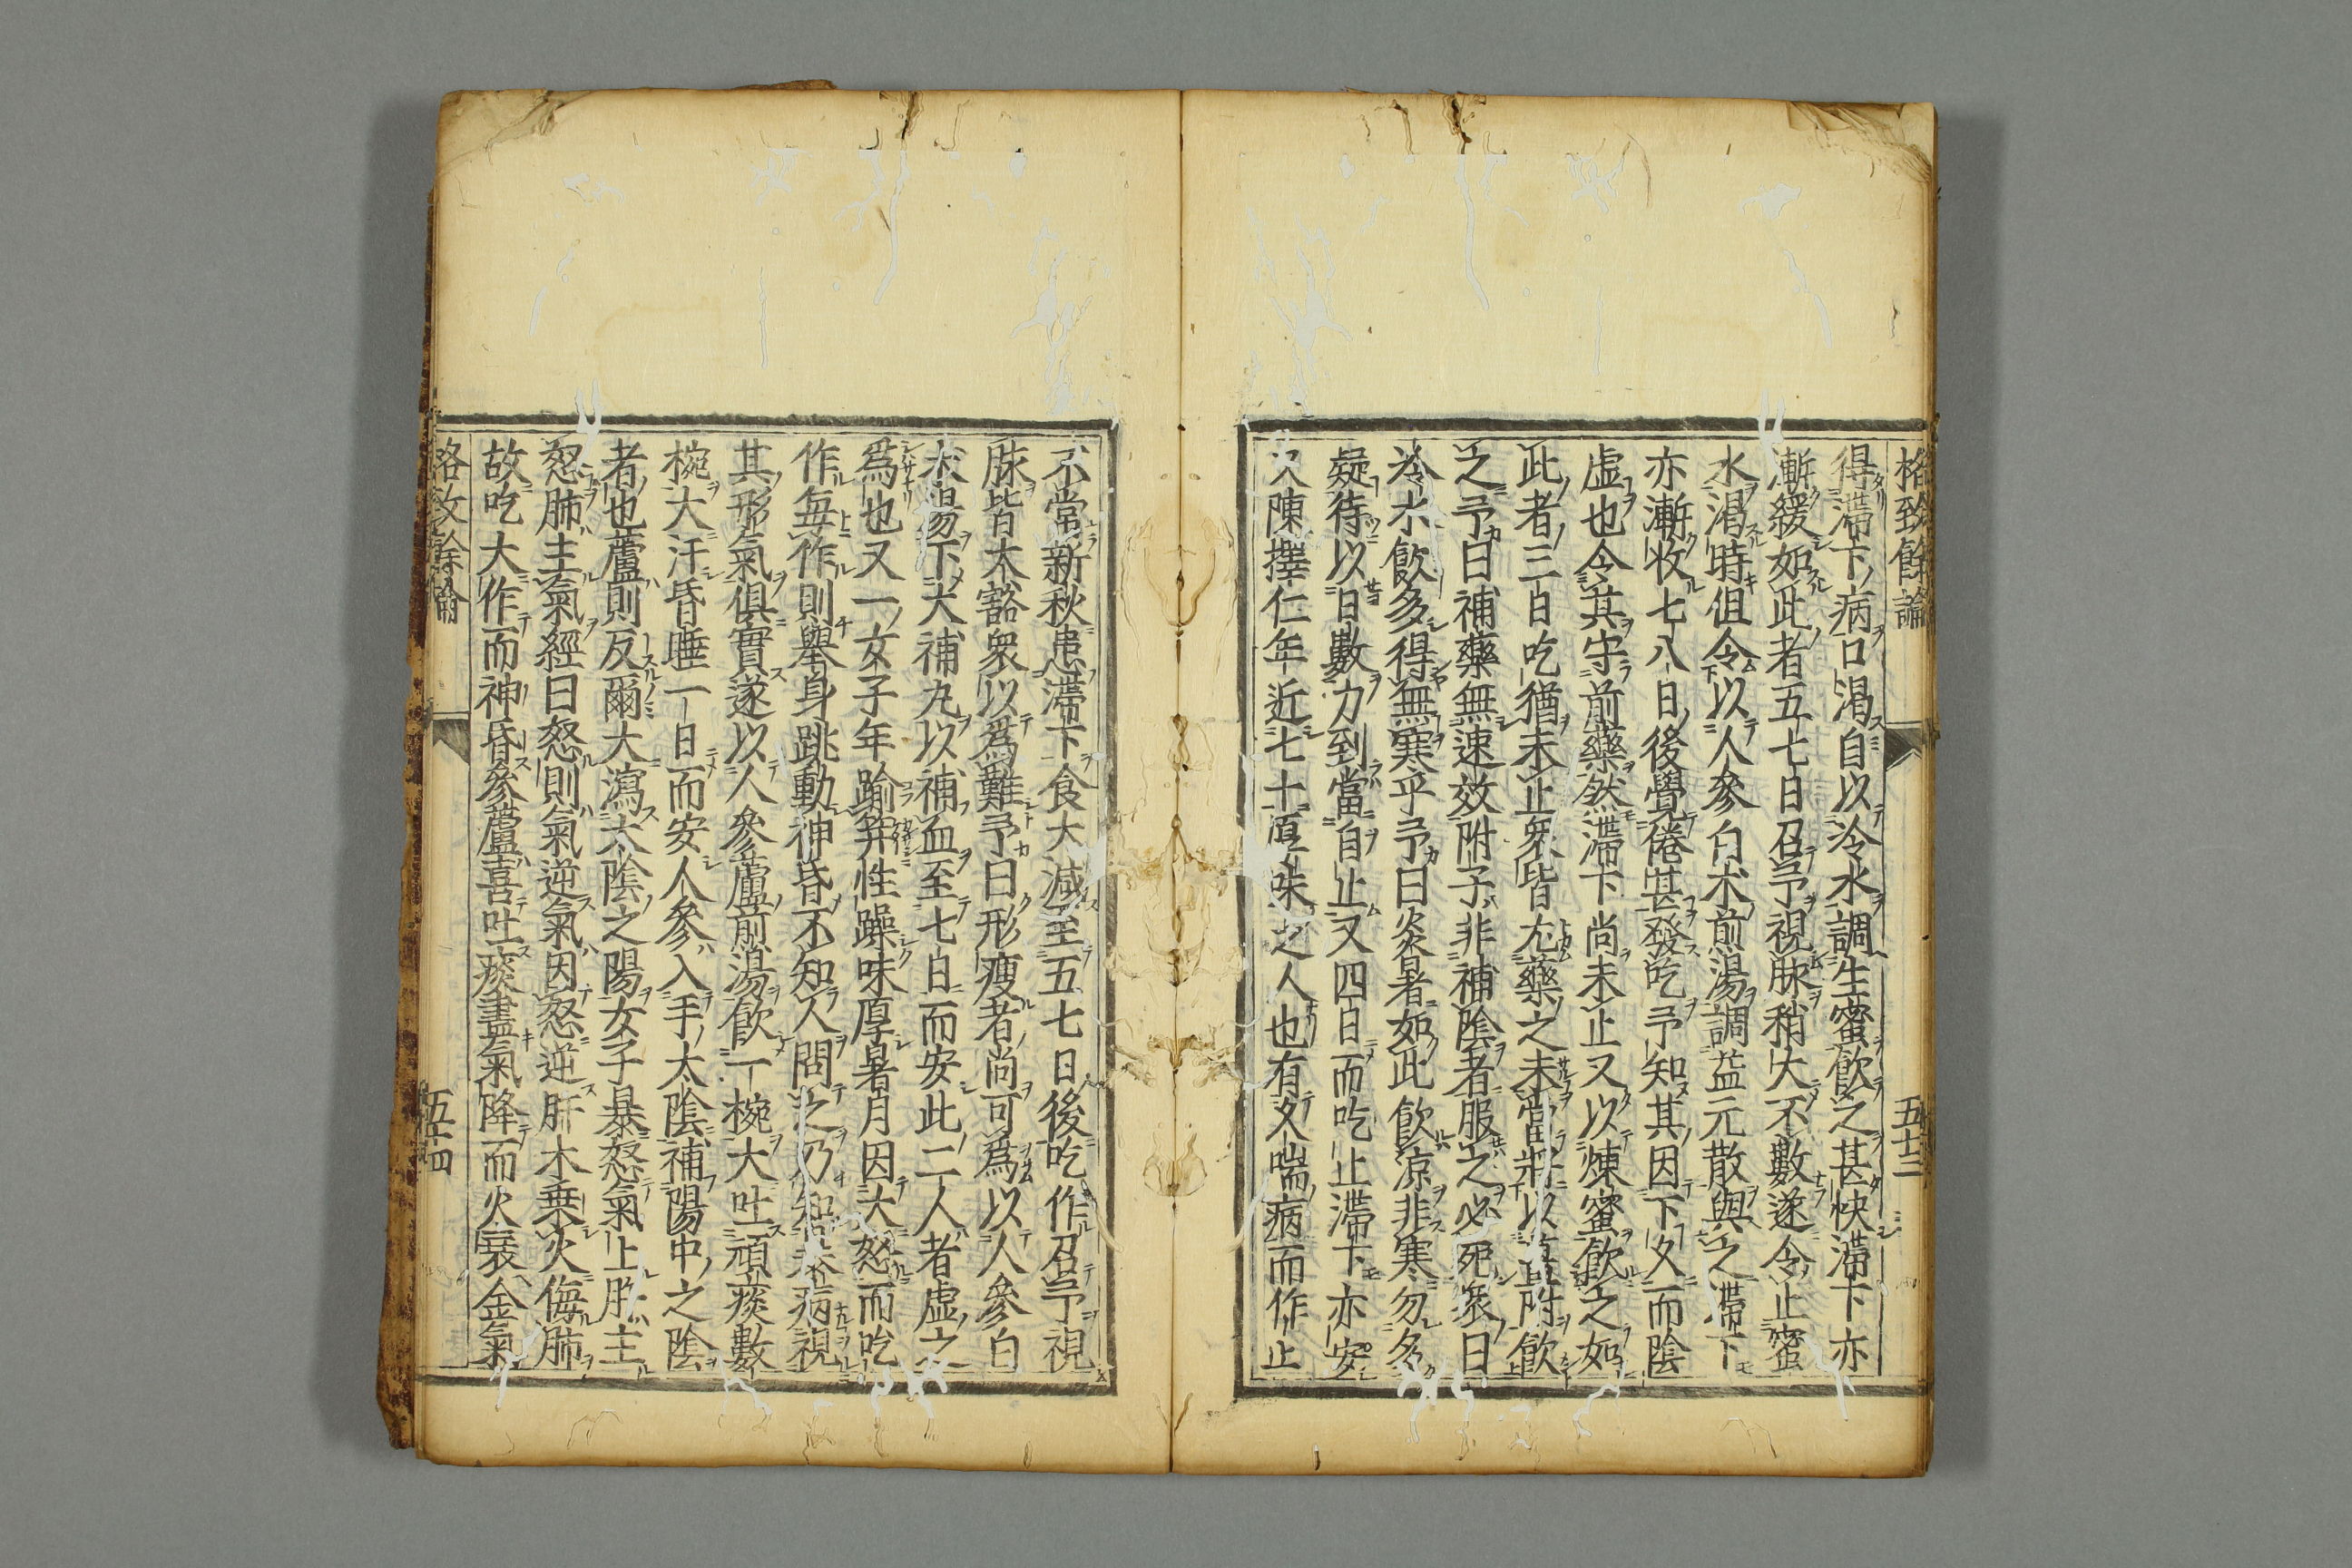 格致餘論 五十三
得滯下病口渴自以冷水調生蜜飲之甚快滯下亦
漸緩如此者五七日召予視脉稍大不數遂令止蜜
水渴時但令以人參白朮煎湯調益元散與之滯下
亦漸收七八日後覺倦甚發吃予知其因下久而陰
虛也令其守前藥然滯下尚未止又以煉蜜飲之如
此者三日吃猶未止衆皆尤藥之未當將以薑附飲
之予曰補藥無速效附子非補陰者服之必死衆曰
冷水飲多得無寒乎予曰炎暑如此飲涼非寒勿多
疑待以日數力到當自止又四日而吃止滯下亦安
又陳擇仁年近七十厚味之人也有久喘病而作止
不常新秋患滯下食大減至五七日後吃作召予視
脉皆大豁衆以爲難予曰形瘦者尚可爲以人參白
朮湯下大補丸以補血至七日而安此二人者虛之
爲也又一女子年踰笄性躁味厚暑月因大怒而吃
作每作則舉身跳動神昏不知人問之乃知暴病視
其形氣俱實遂以人參蘆煎湯飲一椀大吐頑痰數
椀大汗昏睡一日而安人參入手太陰補陽中之陰
者也蘆則反爾大瀉太陰之陽女子暴怒氣上肝主
怒肺主氣經曰怒則氣逆氣因怒逆肝木乘火侮肺
故吃大作而神昏參蘆喜吐痰盡氣降而火衰金氣
格致餘論 五十四